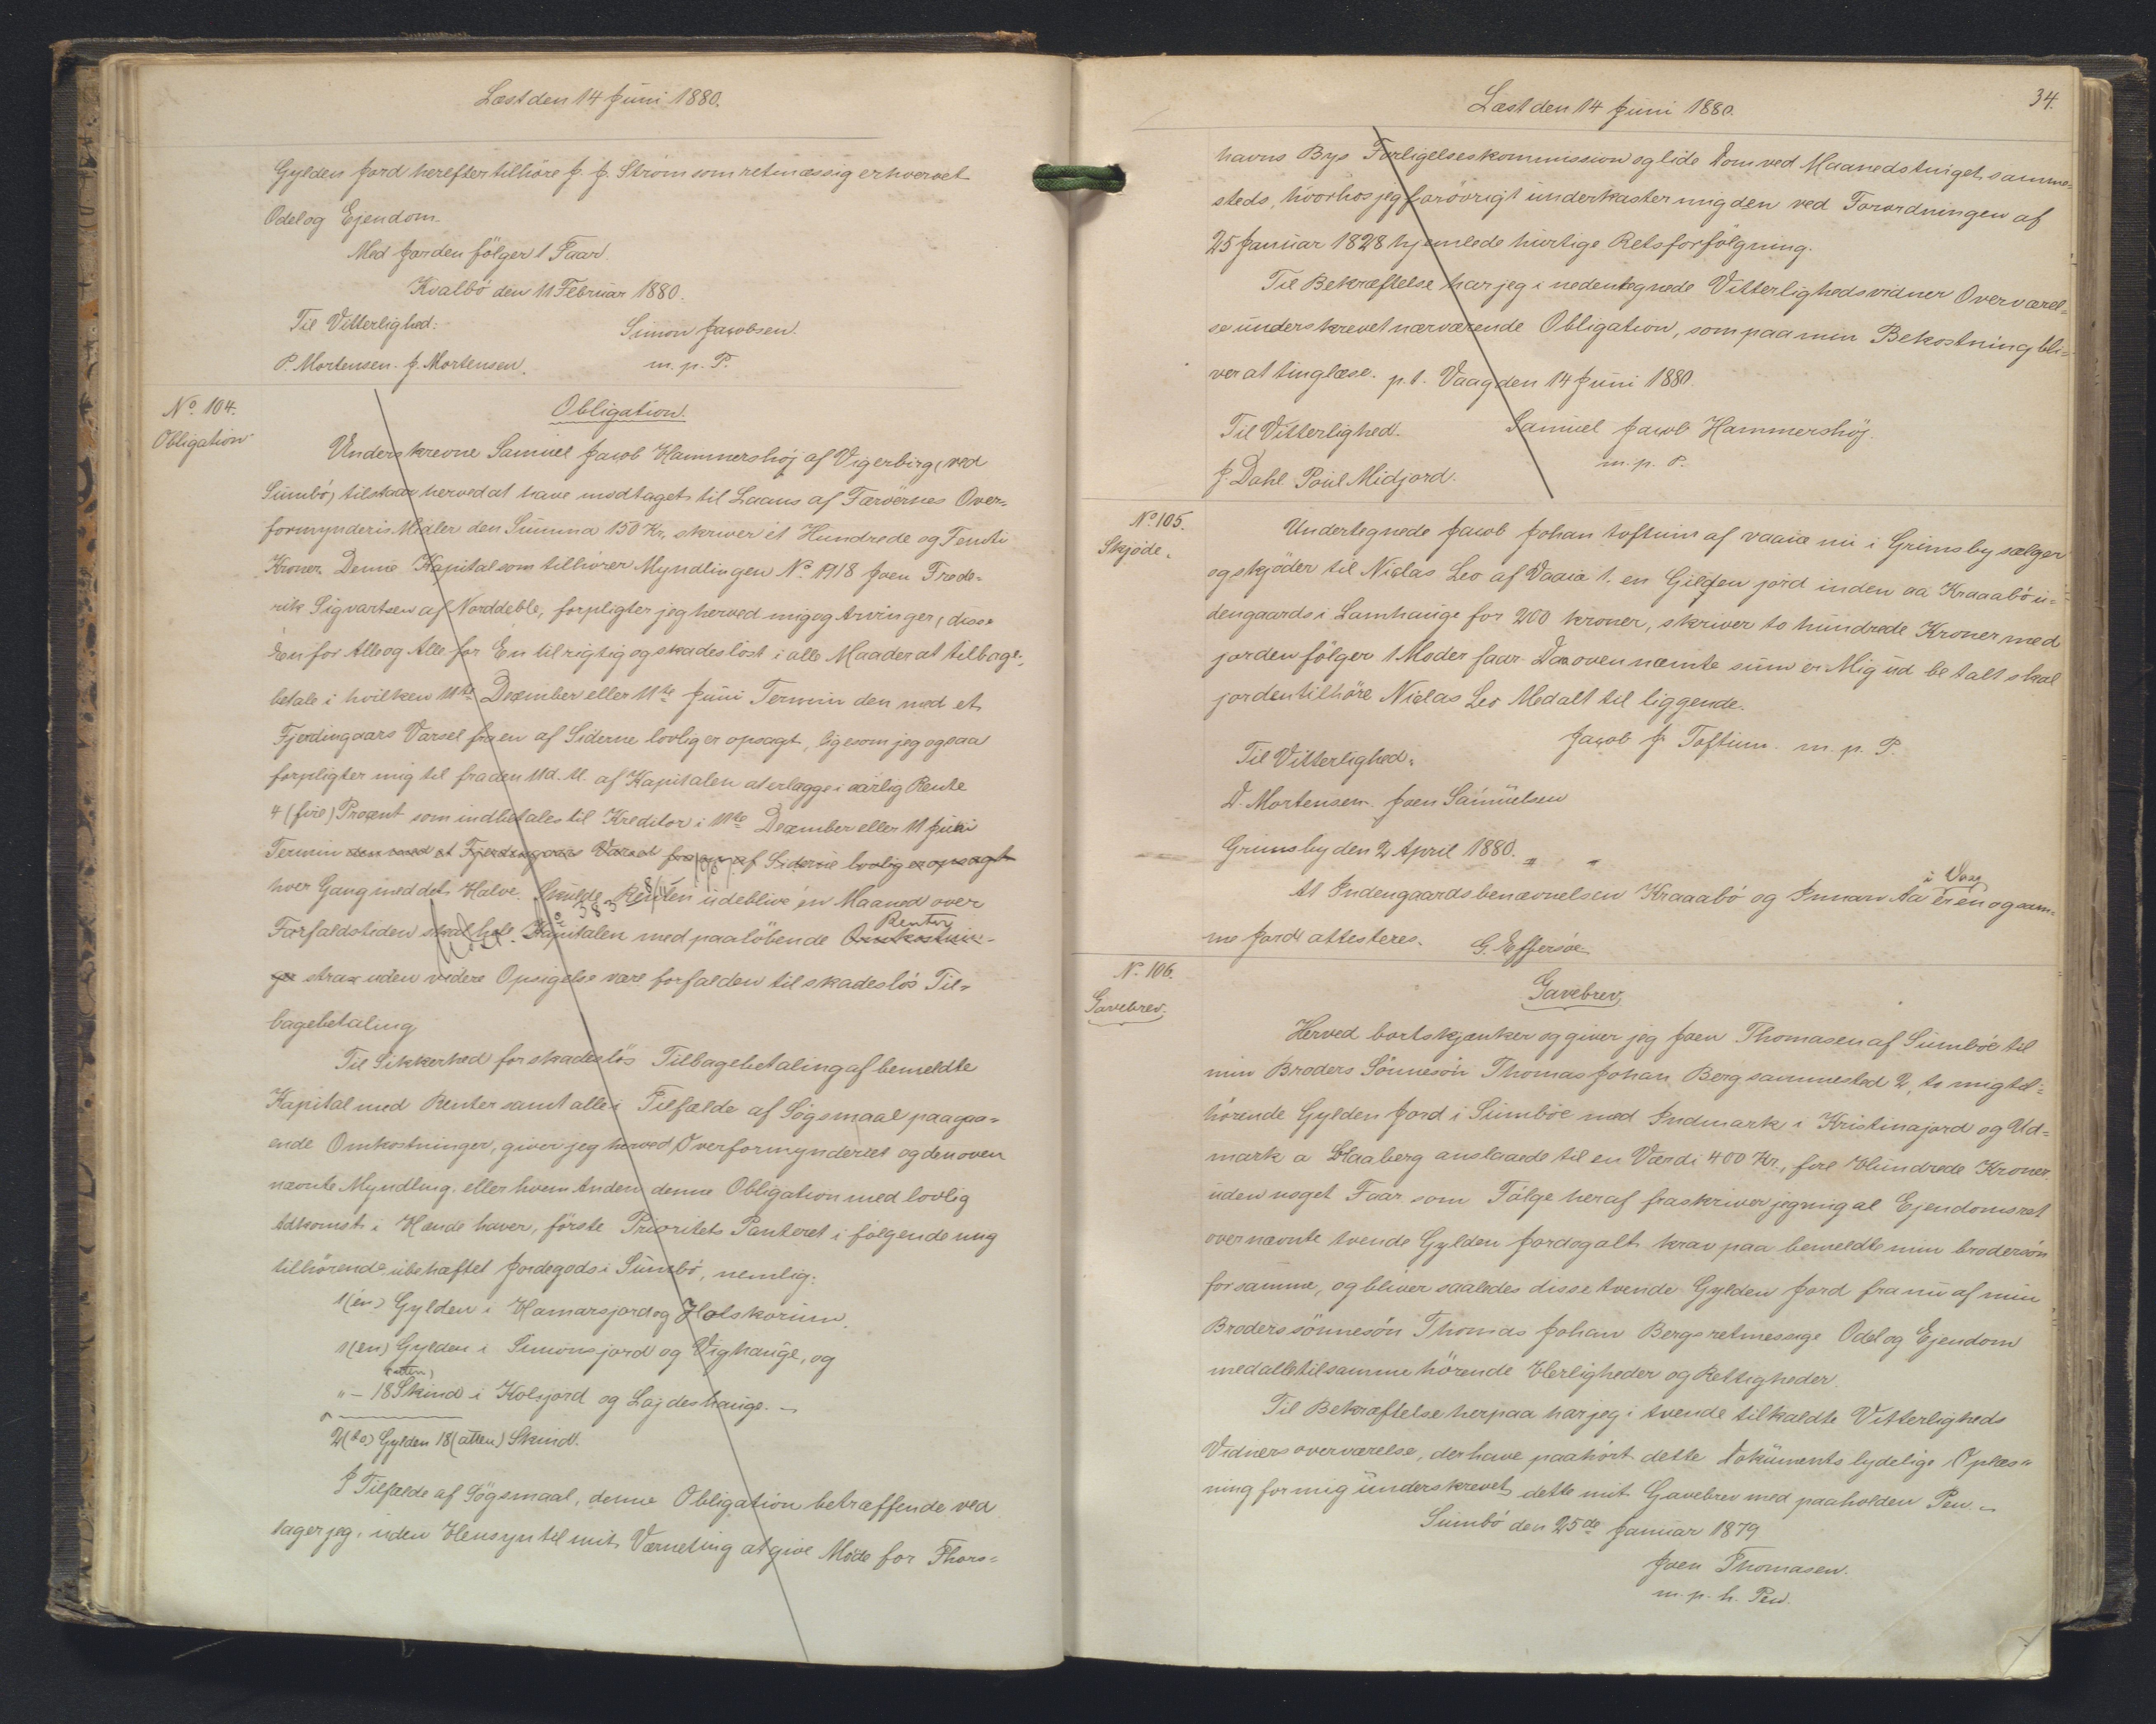 Læst den 14 Juni 1880.
Gylden Jord herefter tilhöre J. J. Strøm som retmæssig erhvervet
Odel og Ejendom.
Med Jorden fölger 1 Faar.
Kvalbö den 11 Februar 1880.
Til Vitterlighed:
Simon Jacobsen.
P. Mortensen. J. Mortensen.
m. p. P.
No. 104.
Obligation
Obligation.
Underskrevne Samuel Jacob Hammershøj af Vigerbirg (ved
Sumbö) tilstaar herved at have modtaget til Laans af Færöernes Over-
formynderis Midler den Summa 150 Kr., skriver et Hundrede og Femti
Kroner. Denne Kapital som tilhører Myndlingen No. 1918 Joen Frede-
rik Sigvartsen af Norddeble, forpligter jeg herved mig og Arvinger, disse
Een for Alle og Alle for En til rigtig og skadeslöst i alle Maader at tilbage-
betale i hvilken 11te December eller 11te Juni Termin den med et
Fjerdingaars Varsel fra en af Siderne lovlig er opsagt, ligesom jeg ogsaa
forpligter mig til fra den 11 d. M. af Kapitalen at erlægge i aarlig Rente
4 (fire) Procent som indbetales til Kreditor i 11te December eller 11 Juni
Termin den med et Fjerdingaars Varsel fra en af Siderne lovlig er opsagt
hver Gang med det Halve. Skulde Renten udeblive en Maaned over
No 383
Forfaldstiden skal hele Kapitalen med paalöbende Omkostnin-
Renter
ger strax uden videre Opsigelse være forfalden til skadeslös Til-
bagebetaling
Til Sikkerhed for skadeslös Tilbagebetaling af bemeldte
Kapital med Renter samt alle i Tilfælde af Sögsmaal paagaa-
ende Omkostninger, giver jeg herved Overformynderiet og den oven
nævnte Myndling, eller hvem Anden denne Obligation med lovlig
Adkomst i Hænde haver, förste Prioritets Panteret i følgende mig
tilhörende ubehæftet Jordegods i Sumbö, nemlig:
1 (én) Gylden i Hamarsjord og Holskorum.
1 (én) Gylden i Simonsjord og Vighauge, og
(atten)
" - 18 Skind i Kolsjord og Lajdeshauge. -
2 (to) Gylden 18 (atten) Skind.
I Tilfælde af Sögsmaal, denne Obligation betræffende ved
tager jeg, uden Hensyn til mit Værneting at give Möde for Thors-
Læst den 14 Juni 1880.
34.
havns Bys Forligelseskommission og lide Dom ved Maanedstinget samme-
steds, hvorhos jeg forövrigt underkaster mig den ved Forordningen af
25 Januar 1828 hjemlede hurtige Retsforfölgning.
Til Bekræftelse har jeg i nedentegnede Vitterlighedsvidner Overværel-
se underskrevet nærværende Obligation, som paa min Bekostning bli-
ver at tinglæse. p. t. Vaag den 14 Juni 1880.
Til Vitterlighed.
Samuel Jacob Hammershöj.
J. Dahl Poul Midjord.
m. p. P.
No. 105.
Skjöde.
Undertegnede Jacob Johan toftum af vaaie nu i Grimsby sælger
og skjöder til Niclas Leo af Vaaie 1. en Gilden jord inden aa Kraaabö u-
dengaards i Lamhauge for 200 kroner, skriver to hundrede Kroner med
jorden fölger 1 Moder faar. Da ovennæmte sum er Mig ud be talt skal
jorden tilhöre Niclas Leo Medalt til liggende.
Jacob J. Toftum. m. p. P.
Til Vitterlighed:
D. Mortensen. Joen Samuelsen
Grimsby den 2 April 1880.
At Indengaardsbenævnelsen Kraaabö og Innan Aa er en og sam-
i Vaag
me Jord attesteres.
G. Effersöe
No. 106.
Gavebrev.
Gavebrev.
Herved bortskjænker og giver jeg Joen Thomasen af Sumböe til
min Broders Sönnesön Thomas Johan Berg sammested 2, to mig til-
hörende Gylden Jord i Sumböe med Indmark i Kristinajord og Ud-
mark a Blaaberg anslaaede til en Værdi 400 Kr., fire Hundrede Kroner,
uden noget Faar. som Fölge heraf fraskriver jeg mig al Ejendomsret
over nævnte tvende Gylden Jord og alt krav paa bemeldte min brodersön
for samme, og bliver saaledes disse tvende Gylden Jord fra nu af min
Broderssönnesön Thomas Johan Bergs retmessige Odel og Ejendom
med alle til samme hörende Herligheder og Rettigheder.
Til Bekræftelse herpaa har jeg i tvende tilkaldte Vitterligheds
Vidners overværelse, der have paahört dette Dokuments lydelige Oplæs-
ning for mig underskrevet dette mit Gavebrev med paaholden Pen. -
Sumbö den 25de Januar 1879
Joen Thomasen.
m. p. h. Pen.